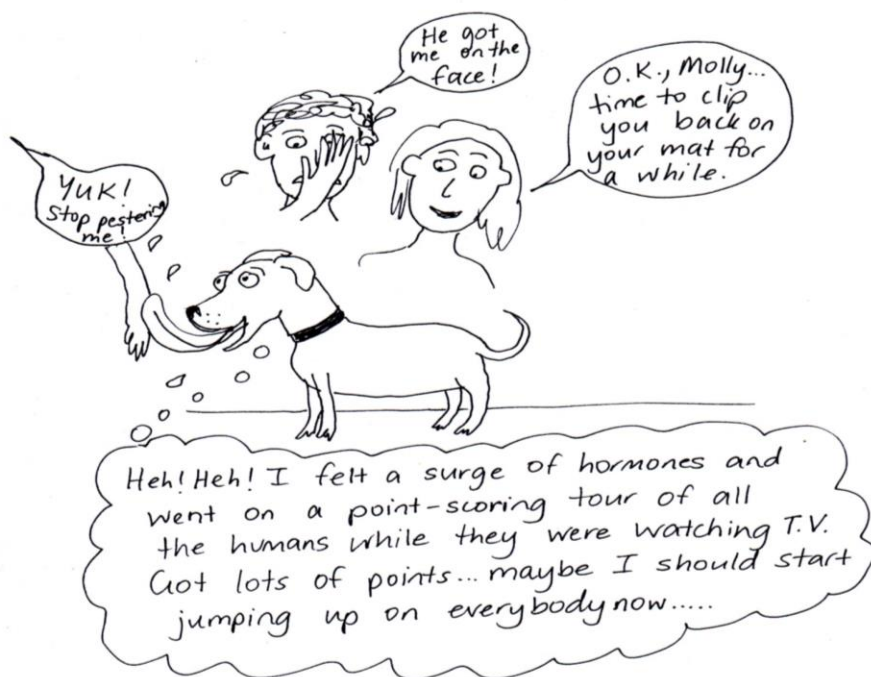 He got
me on the
face!
O.K., Molly...
time to clip
you back on
your mat for
a while.
YUK!
Stop pestering
me!
Heh! Heh! I felt a surge of hormones and
went on a point-scoring tour of all
the humans while they were watching T.V.
Got lots of points... maybe I should start
jumping up on everybody now.....